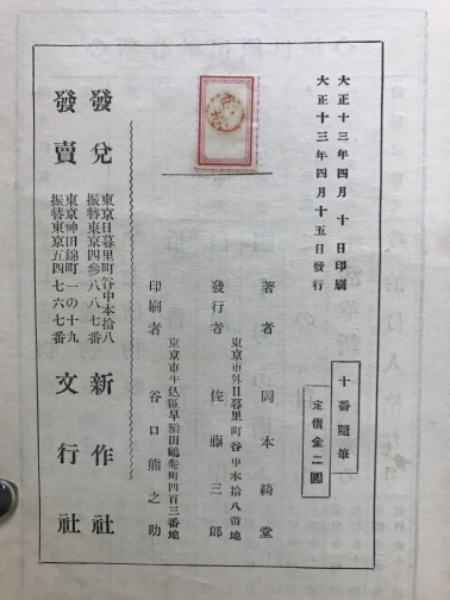 大正十三年四月十日印刷
大正十三年四月十五日發行
十番隨筆
定價金二圓
著者 岡本綺堂
東京市外日暮里町谷中本拾八番地
發行者 佐藤三郎
東京市牛込區早稲田鶴巻町四百三番地
印刷者 谷口熊之助
發兌 東京日暮里町谷中本拾八 振替東京四參八八七番 新作社
發賣 東京神田錦町一の十九 振替東京五四七六七番 文行社